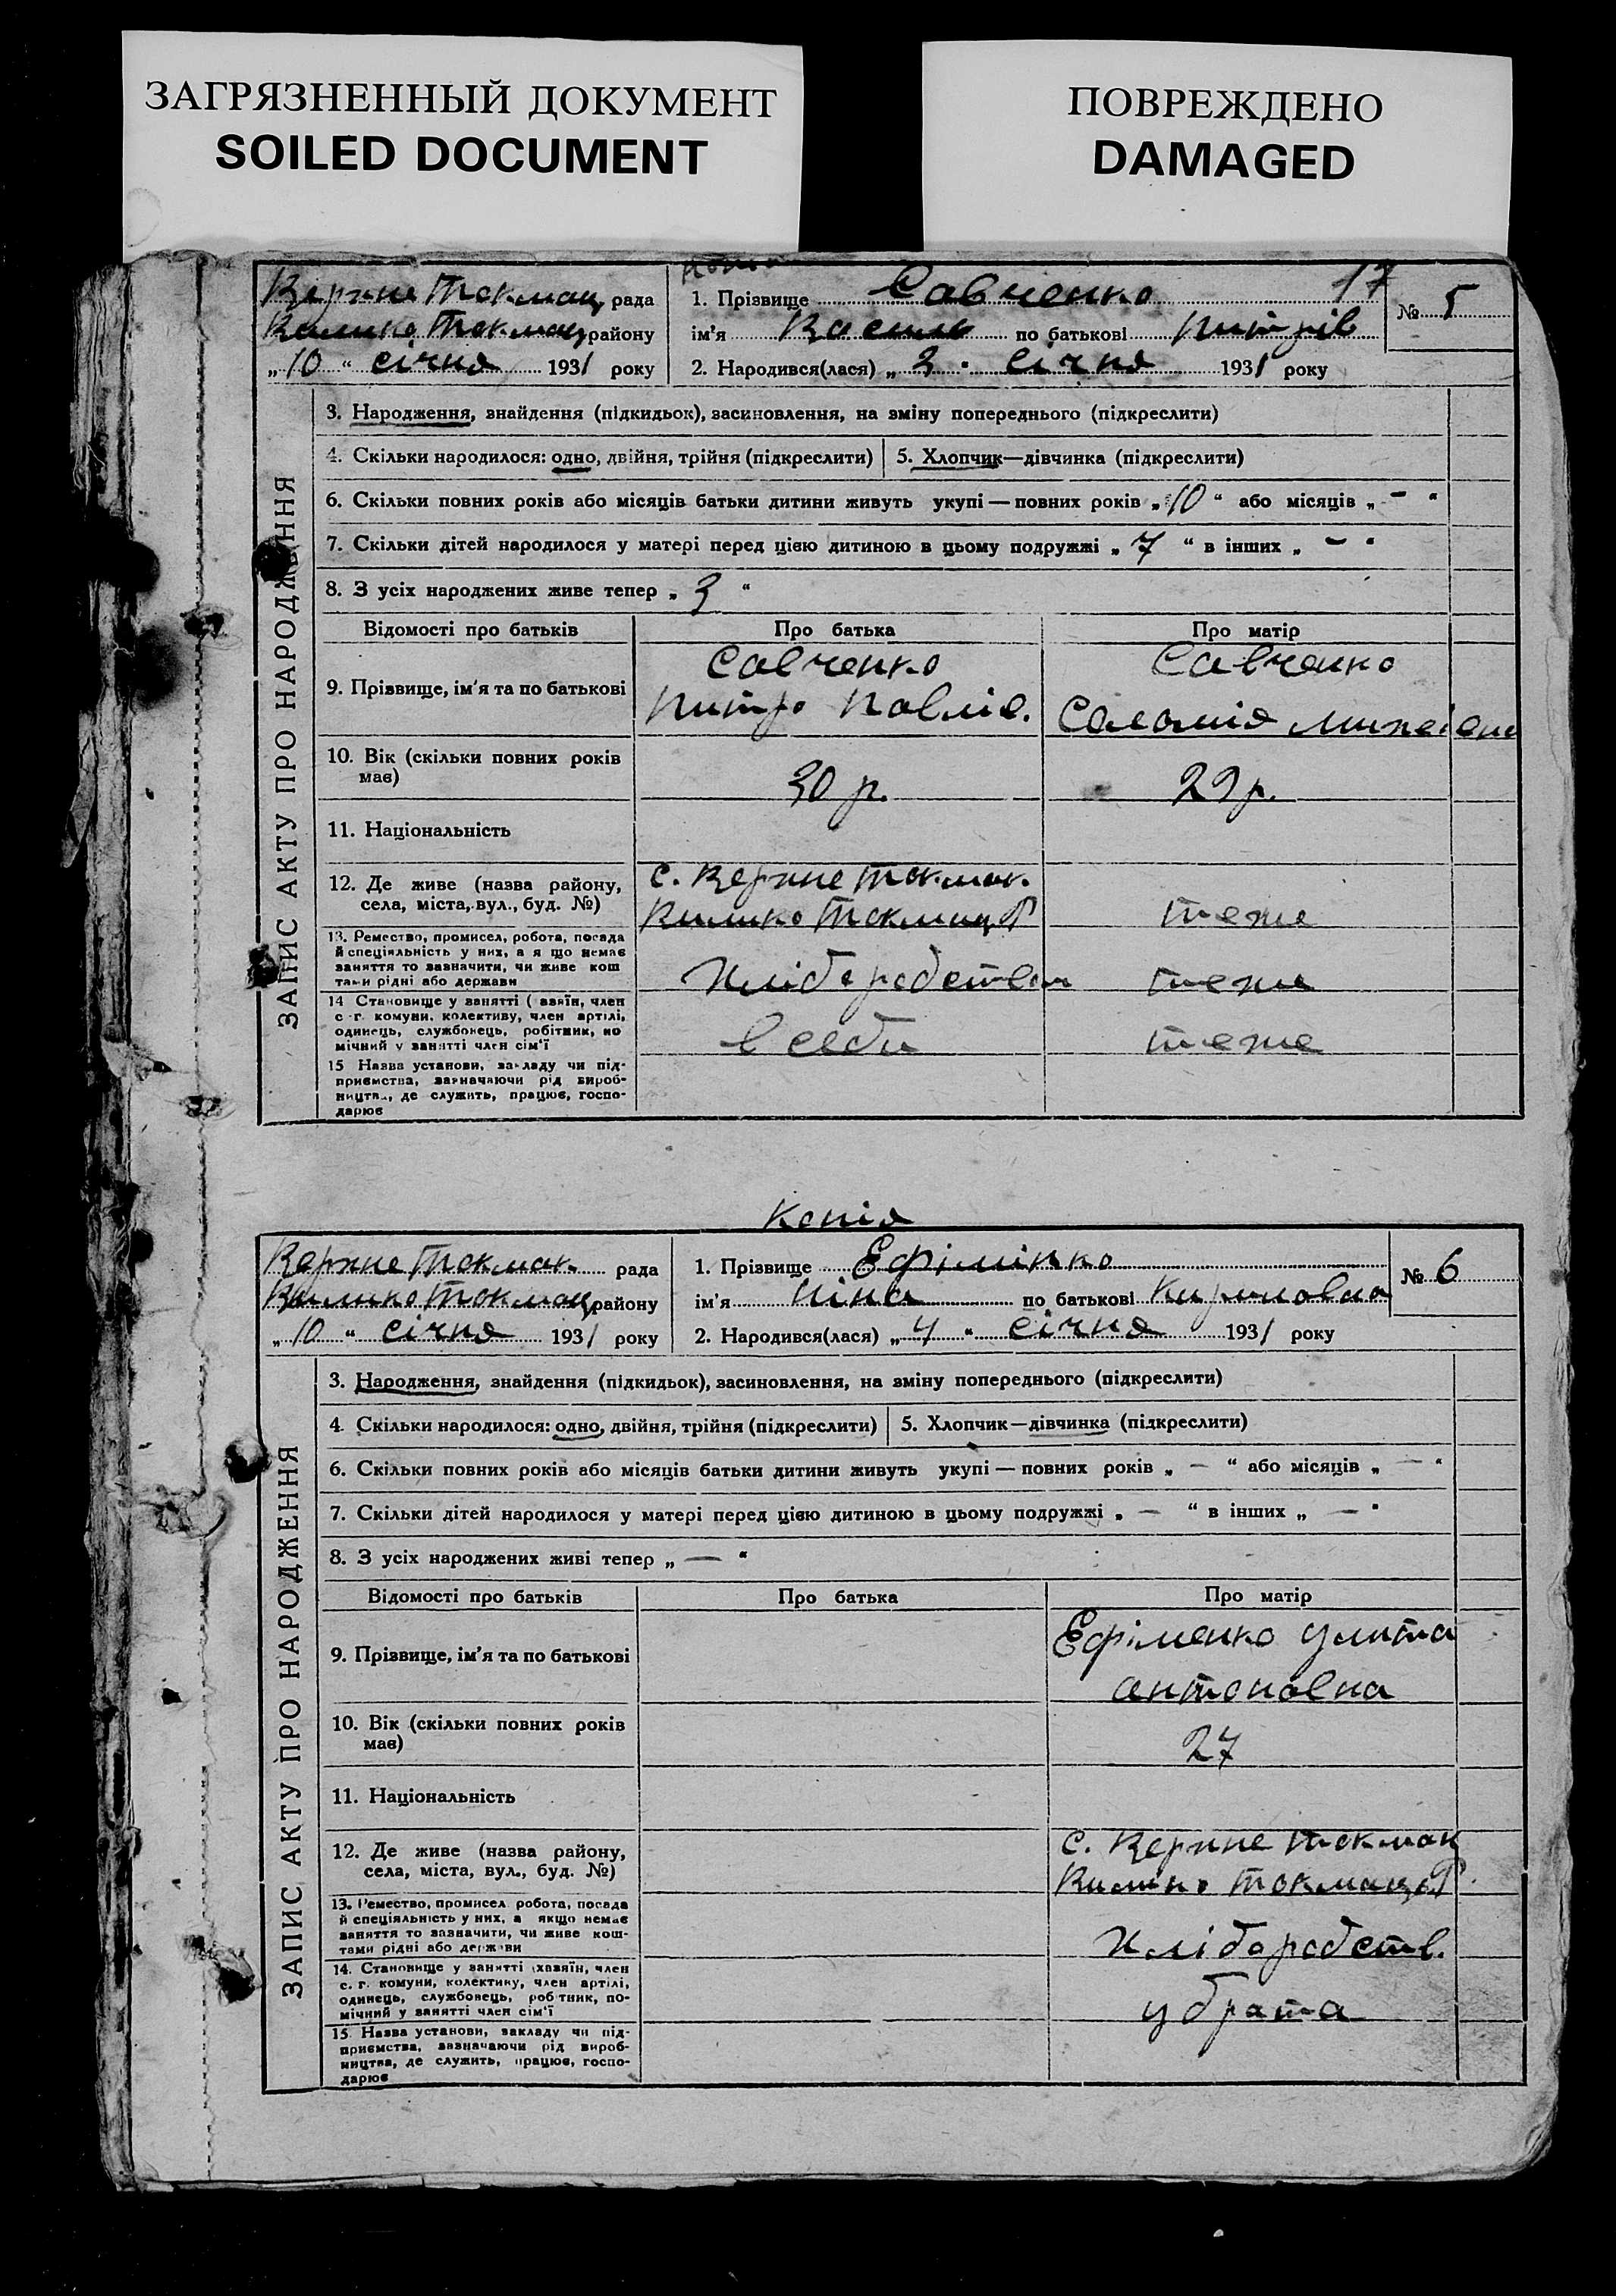 ЗАГРЯЗНЕННЫЙ ДОКУМЕНТ
SOILED DOCUMENT
ПОВРЕЖДЕНО
DAMAGED
17
Верхне Токмац. рада
Велико Токмац району
„10“ січня 1931 року
1. Прізвище Савченко
ім'я Василь по батькові Питрів
2. Народився(лася) „3“ січня 1931 року
№ 5
ЗАПИС АКТУ ПРО НАРОДЖЕННЯ
3. Народження, знайдення (підкидьок), засиновлення, на зміну попереднього (підкреслити)
4. Скільки народилося: одно, двійня, трійня (підкреслити)
5. Хлопчик—дівчинка (підкреслити)
6. Скільки повних років або місяців батьки дитини живуть укупі — повних років „10“ або місяців „-“
7. Скільки дітей народилося у матері перед цією дитиною в цьому подружжі „7“ в інших „-“
8. З усіх народжених живе тепер „3“
Відомості про батьків Про батька Про матір
9. Прізвище, ім'я та по батькові
Савченко
Питро Павлів.
Савченко
Саломія
10. Вік (скільки повних років
має)
30 р.
29 р.
11. Національність
12. Де живе (назва району,
села, міста, вул., буд. №)
с. Верхне Токмак.
Велико Токмац Р
теже
13. Ремество, промисел, робота, посада
й спеціяльність у них, а я що немає
заняття то зазначити, чи живе кош
тами рідні або держави
Хліборобство
теже
14 Становище у занятті ( азяїн, член
с -г. комуни, колективу, член артілі,
одинець, службовець, робітник, по
мічний у занятті член сім'ї
в себи
теже
15 Назва установи, закладу чи під-
приємства, зазначаючи рід вироб-
ництва, де служить, працює, госпо-
дарює
Копія
Верхне Токмак. рада
Велико Токмац району
„10“ січня 1931 року
1. Прізвище Ефімінко
ім'я Ніна по батькові Кириловна
2. Народився(лася) „4“ січня 1931 року
№ 6
ЗАПИС АКТУ ПРО НАРОДЖЕННЯ
3. Народження, знайдення (підкидьок), засиновлення, на зміну попереднього (підкреслити)
4. Скільки народилося: одно, двійня, трійня (підкреслити)
5. Хлопчик—дівчинка (підкреслити)
6. Скільки повних років або місяців батьки дитини живуть укупі — повних років „—“ або місяців „—“
7. Скільки дітей народилося у матері перед цією дитиною в цьому подружжі „—“ в інших „—“
8. З усіх народжених живі тепер „—“
Відомості про батьків Про батька Про матір
9. Прізвище, ім'я та по батькові
Ефіменко Улита
Антоновна
10. Вік (скільки повних років
має)
27
11. Національність
12. Де живе (назва району,
села, міста, вул., буд. №)
с. Верхне Токмак
Велико Токмацьк Р.
13. Ремество, промисел робота, посада
й спеціяльність у них, а якщо немає
заняття то зазначити, чи живе кош-
тами рідні або держави
Хліборобств.
14. Становище у занятті (хазяїн, член
с. г. комуни, колективу, член артілі,
одинець, службовець, робітник, по-
мічний у занятті член сім'ї
у брата
15. Назва установи, закладу чи під-
приємства, зазначаючи рід вироб-
ництва, де служить, працює, госпо-
дарює